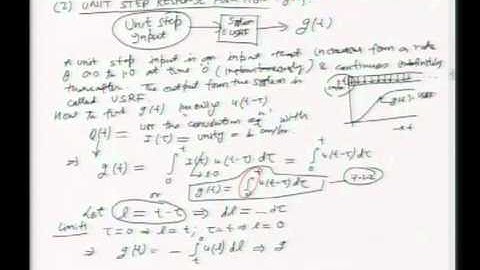 (2) UNIT STEP RESPONSE FUNCTION
Unit Step Input → System USRF → g(t)
A unit step input is an input that increases from a rate
of 0.0 to 1.0 at time 0 (instantaneously) & continues indefinitely
thereafter. The output from the system is
called USRF
How to find g(t) knowing u(t-τ)
Q(t) = use the convolution eqn with
I(τ) = unity =
⇒ g(t) = ∫₀ᵗ I(τ) u(t-τ) dτ = ∫₀ᵗ u(t-τ) dτ
or g(t) = ∫₀ᵗ u(t-τ) dτ
Let l = t-τ ⇒ dl = -dτ
Limits: τ=0 ⇒ l=t; τ=t ⇒ l=0
⇒ g(t) = -∫ₜ⁰ u(l) dl ⇒ g